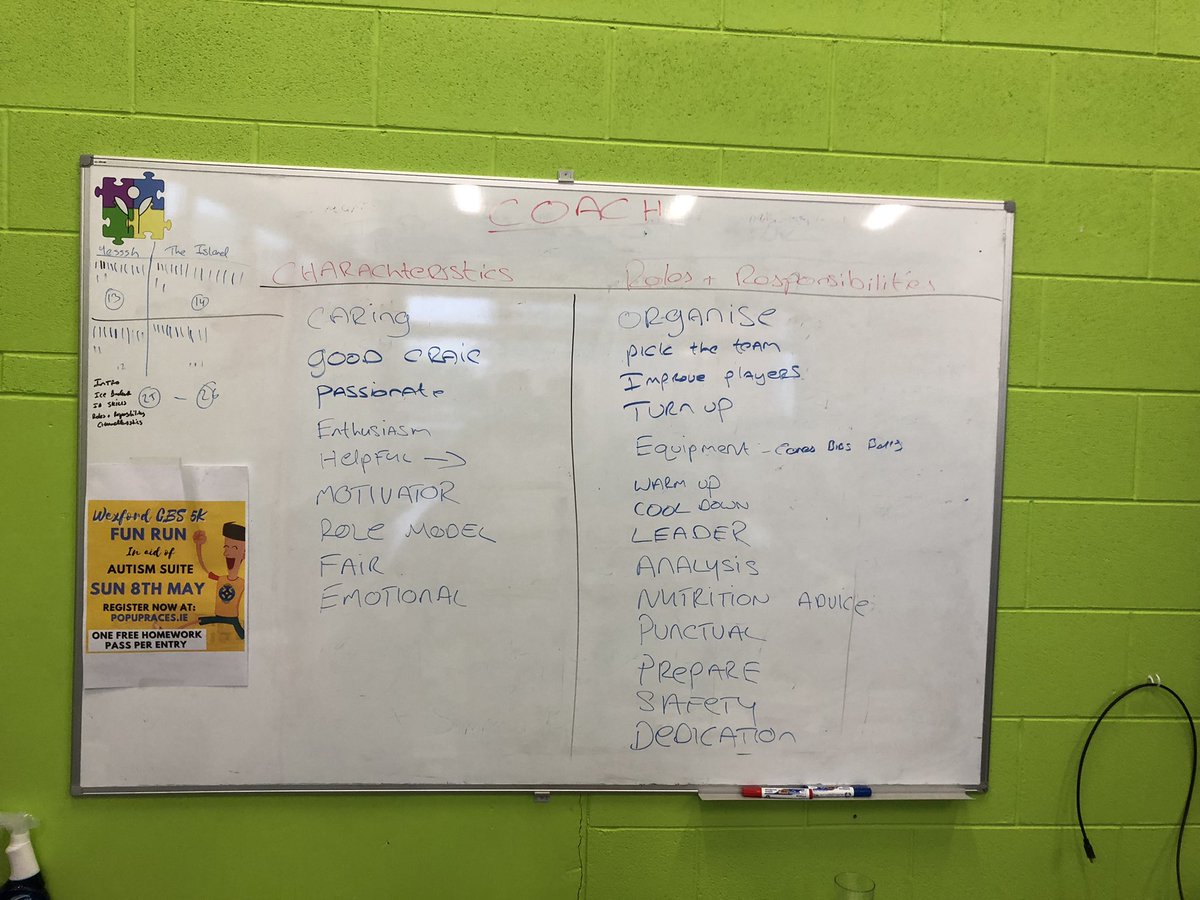 COACH
Yesssh The Island
13 14
25 - 26
Intro
Ice Breaker
ID Skills
Roles + Responsibility
Characteristics
CHARACHteristics
CARing
GOOD CRAIC
PASSionate
Enthusiasm
Helpful →
MOTIVATOR
ROLE MODEL
FAIR
EMOTIONAL
Roles + Responsibilities
ORGANISE
PICK the TEAM
Improve players
TURN UP
Equipment - Cones Bibs Balls
WARM UP
COOL DOWN
LEADER
ANALYSIS
NUTRITION ADVICE
PUNCTUAL
PREPARE
SAFETY
DEDICATION
Wexford CBS 5K
FUN RUN
In aid of
AUTISM SUITE
SUN 8TH MAY
REGISTER NOW AT:
POPUPRACES.IE
ONE FREE HOMEWORK
PASS PER ENTRY